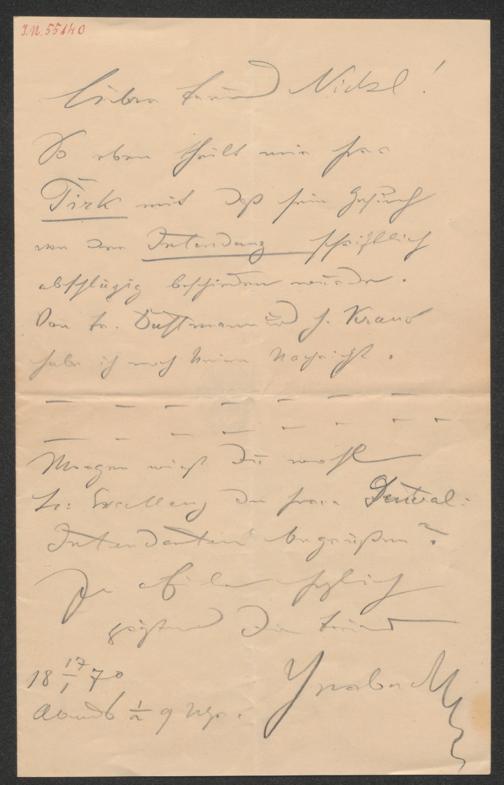 I.N. 55140
Lieber Freund Nickl!
So eben theilt mir Frau
Tirk mit daß sein Gesuch
von der Intendanz schriftlich
abschlägig beschieden wurde.
Von Fr. Dustmann und H. Kraus
habe ich noch keine Nachricht.
Morgen wirst Du wohl
Sr: Excellenz den Herrn General:
Intendanten begrüßen?
herzlich
grüßend Dein Freund
18 17/1 70
Abends 1/2 9 Uhr.